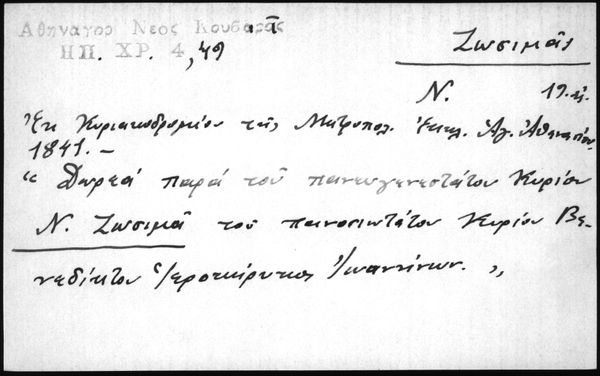 Αθηναγορ Νεος Κουβαρᾶς
ΗΠ. ΧΡ. 4, 49
Ζωσιμᾶς
Ν. 19.
Ἐκ Κυριακοδρομίου τῆς Μητροπολ. Ἐκκλ. Ἁγ. Ἀθανασίου
1841. —
“ Δωρεά παρά τοῦ πανευγενεστάτου Κυρίου
Ν. Ζωσιμᾶ τοῦ πανοσιωτάτου Κυρίου Βε-
νεδίκτου Ἱεροκήρυκος Ἰωαννίνων. ”